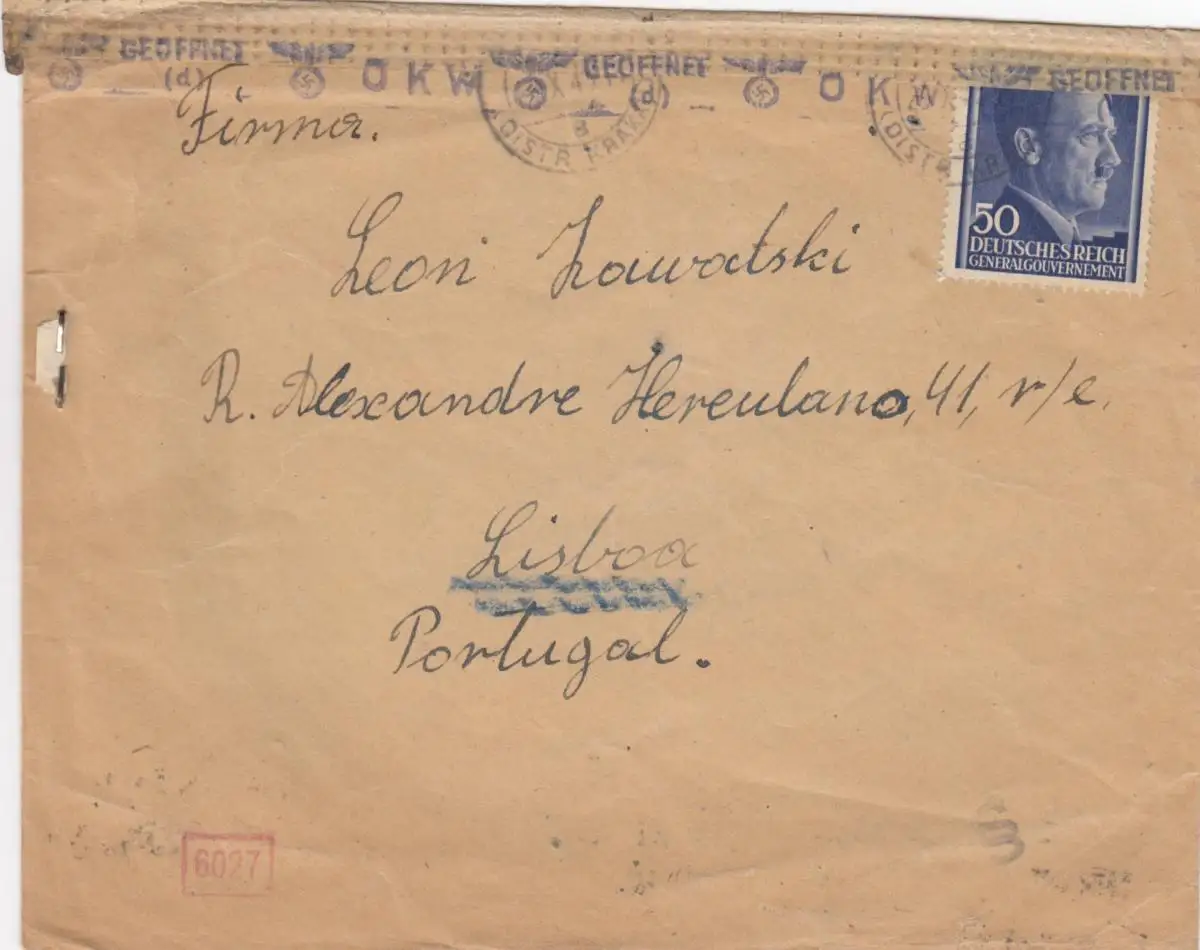 GEÖFFNET OKW GEÖFFNET OKW GEÖFFNET
(d) (d)
DISTR. KRAKAU
DISTR
50
DEUTSCHES REICH
GENERALGOUVERNEMENT
Firma.
Leon Zawatski
R. Alexandre Herculano, 41, r/c.
Lisboa
Portugal.
6027
3